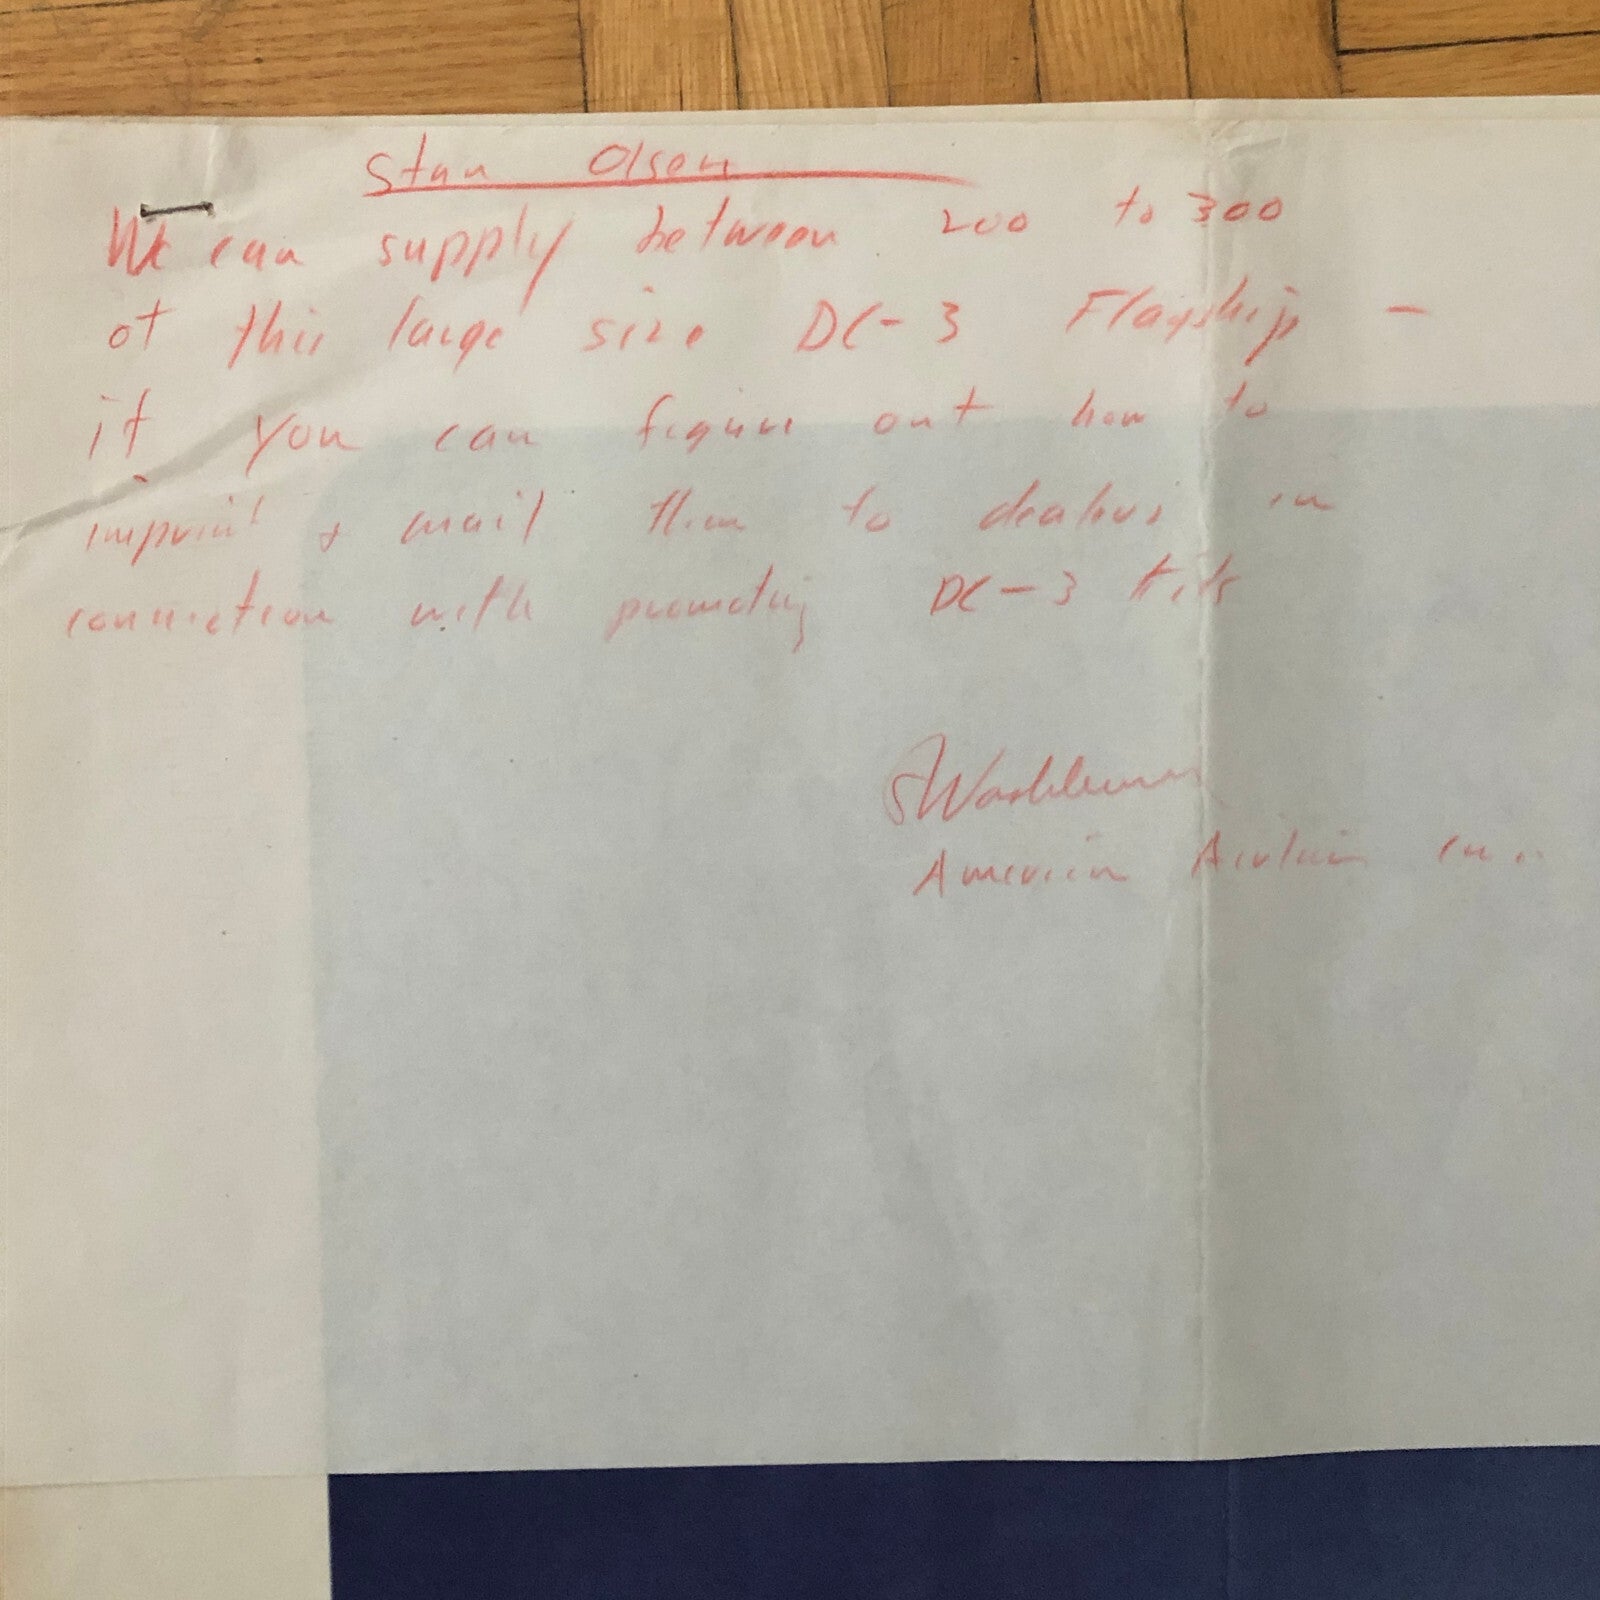 Stan Olsen
We can supply between 200 to 300
of this large size DC-3 Flagship -
if you can figure out how to
imprint + mail them to dealers in
connection with promoting DC-3 kits
American Airlines Inc.